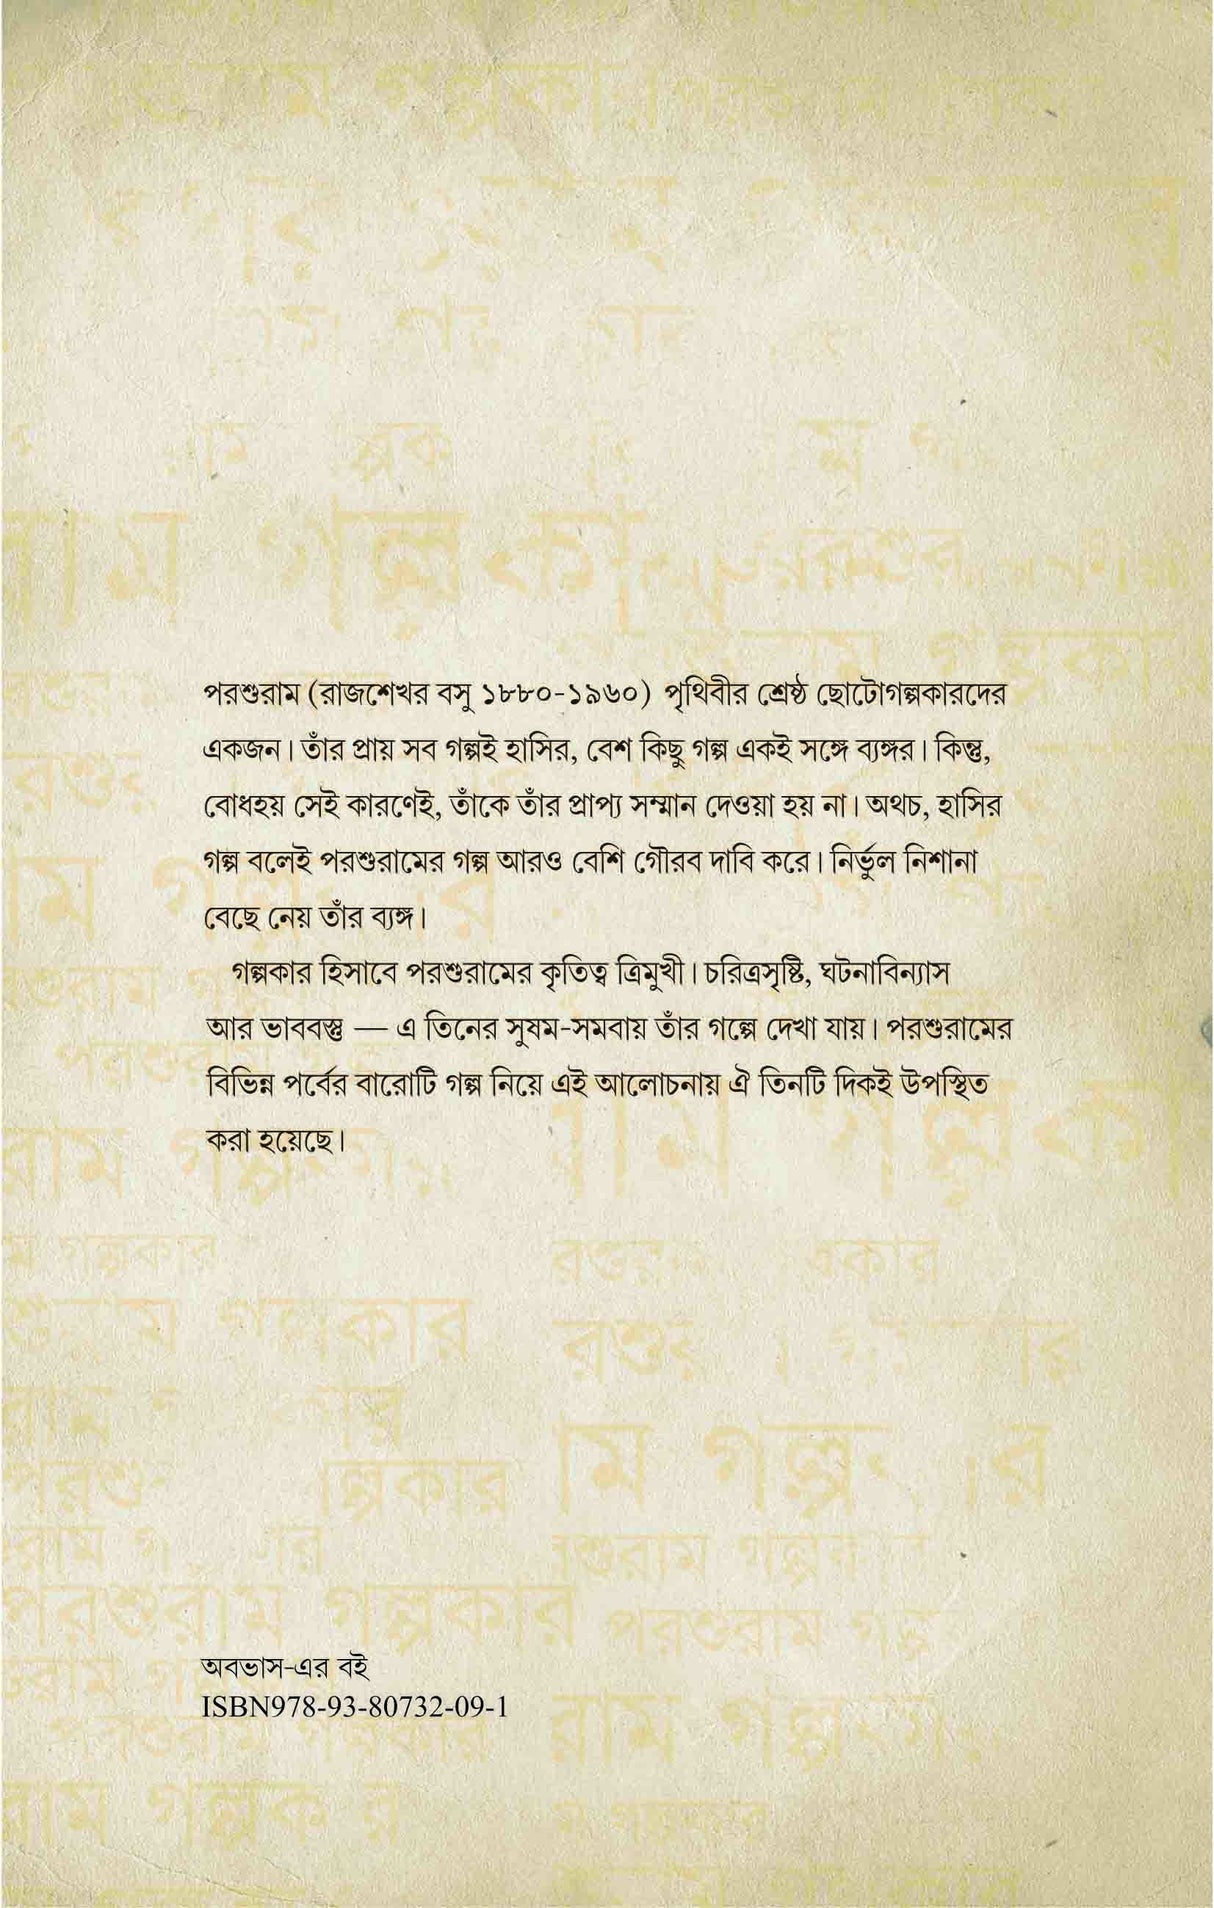 পরশুরাম (রাজশেখর বসু ১৮৮০-১৯৬০) পৃথিবীর শ্রেষ্ঠ ছোটোগল্পকারদের
একজন। তাঁর প্রায় সব গল্পই হাসির, বেশ কিছু গল্প একই সঙ্গে ব্যঙ্গর। কিন্তু,
বোধহয় সেই কারণেই, তাঁকে তাঁর প্রাপ্য সম্মান দেওয়া হয় না। অথচ, হাসির
গল্প বলেই পরশুরামের গল্প আরও বেশি গৌরব দাবি করে। নির্ভুল নিশানা
বেছে নেয় তাঁর ব্যঙ্গ।
গল্পকার হিসাবে পরশুরামের কৃতিত্ব ত্রিমুখী। চরিত্রসৃষ্টি, ঘটনাবিন্যাস
আর ভাববস্তু — এ তিনের সুষম-সমবায় তাঁর গল্পে দেখা যায়। পরশুরামের
বিভিন্ন পর্বের বারোটি গল্প নিয়ে এই আলোচনায় ঐ তিনটি দিকই উপস্থিত
করা হয়েছে।
অবভাস-এর বই
ISBN978-93-80732-09-1